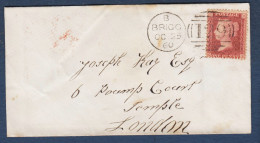 B
BRIGG
OC 25
60
Joseph Kay Esq
6 Pump Court
Temple
London